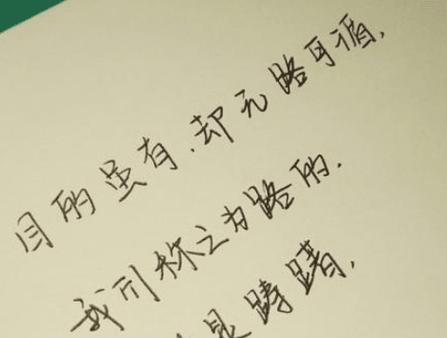 目的虽有,却无路可循,
我们称之为路的,
是踌躇,